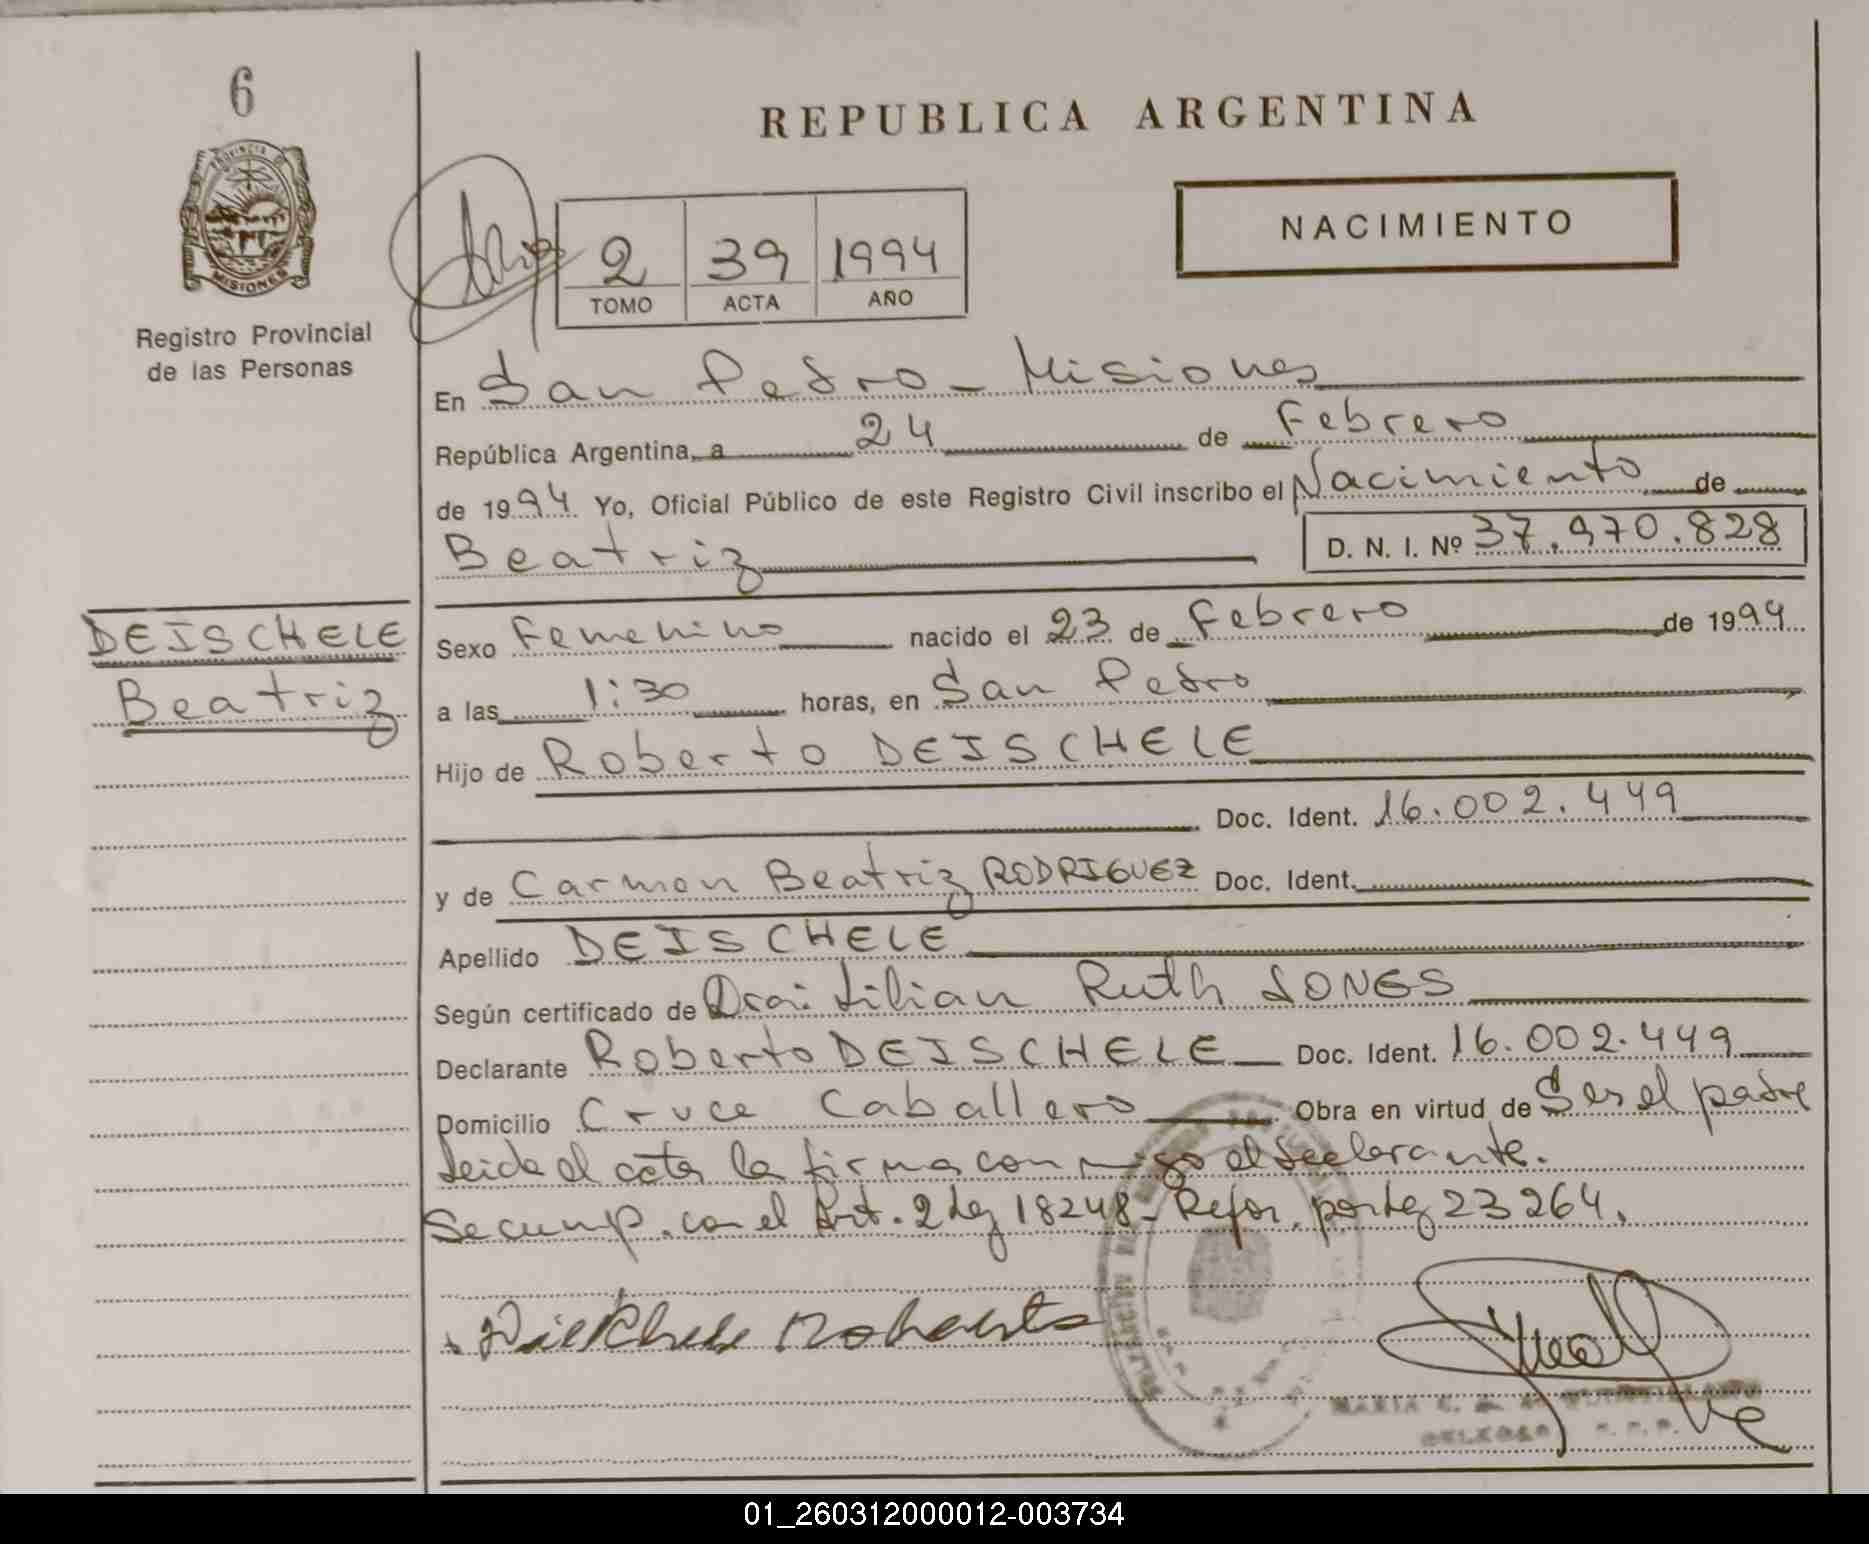 6
PROVINCIA DE
MISIONES
Registro Provincial
de las Personas
REPUBLICA ARGENTINA
NACIMIENTO
2 39 1994
TOMO ACTA AÑO
En San Pedro - Misiones
República Argentina, a 24 de Febrero
de 1994 Yo, Oficial Público de este Registro Civil inscribo el Nacimiento de
Beatriz D. N. I. Nº 37.970.828
DEISCHELE
Beatriz
Sexo Femenino nacido el 23 de Febrero de 1994
a las 1:30 horas, en San Pedro
Hijo de Roberto DEISCHELE
Doc. Ident. 16.002.449
y de Carmen Beatriz RODRIGUEZ Doc. Ident.
Apellido DEISCHELE
Según certificado de Dra: Lilian Ruth JONES
Declarante Roberto DEISCHELE Doc. Ident. 16.002.449
Domicilio Cruce Caballero Obra en virtud de Ser el padre
Leida el acta la firma conmigo el declarante.
Se cump. con el Art. 2 Ley 18248 - Refor. por Ley 23264.
Roberto
MARIA
DELEGADA R. P. P.
01_260312000012-003734